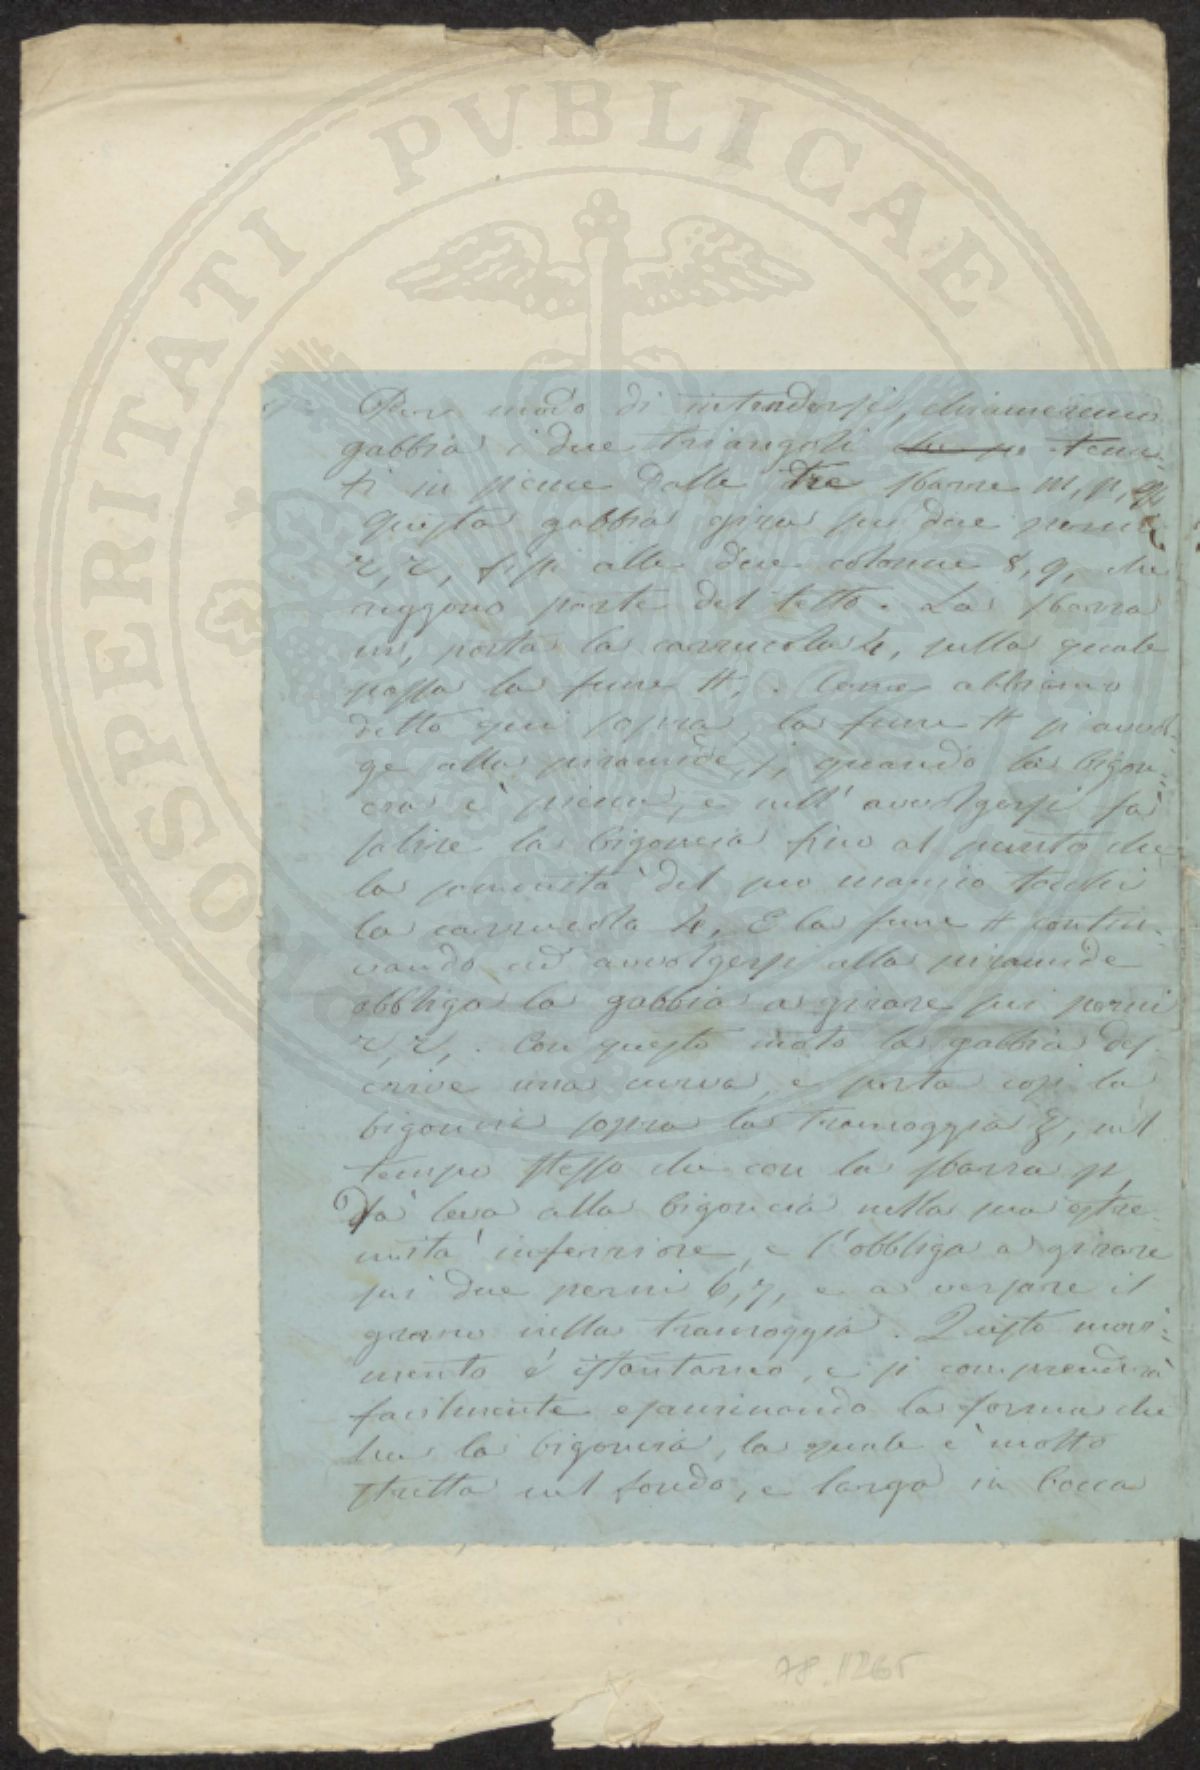 PROSPERITATI PUBLICAE
Per modo di intenderſi, chiameremo
gabbia i due triangoli tenu-
ti inſieme dalle tre ſbarre m, p, q
queſta gabbia gira ſu due perni
r, r, fiſſi alle due colonne 8, 9, che
reggono parte del tetto. La ſbarra
m, porta la carrucola 4, ſulla quale
paſſa la fune tt,. Come abbiamo
detto qui ſopra, la fune tt ſi avvol-
ge alla piramide, j, quando la bigon-
cia è piena, e nell' avvolgerſi fa
ſalire la bigoncia fino al punto che
la ſommità del ſuo manico tocchi
la carrucola 4, E la fune tt contin-
uando ad avvolgerſi alla piramide
obbliga la gabbia a girare ſui perni
r, r,. Con queſto moto la gabbia deſ-
crive una curva, e porta coſi la
bigoncia ſopra la tramoggia, nel
tempo ſteſſo che con la ſbarra p,
Dà leva alla bigoncia nella ſua eſtre-
mità inferriore, e l'obbliga a girare
ſui due perni 6, 7, e a verſare il
grano nella tramoggia. Queſto movi-
mento è iſtantaneo, e ſi comprenderà
facilmente eſaminando la forma che
ha la bigoncia, la quale è molto
ſtretta nel fondo, e larga in bocca
78.1265